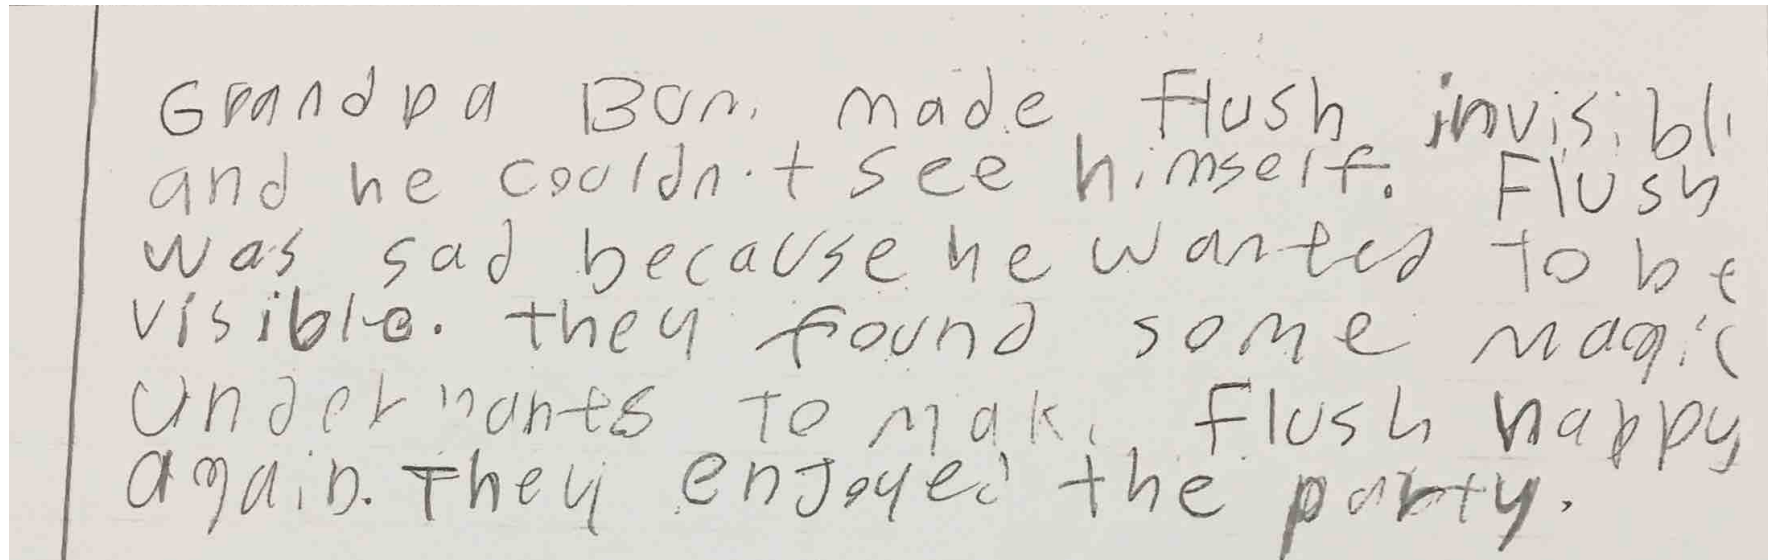 Grandpa Bum made Flush invisible
and he couldn't see himself. Flush
was sad because he wanted to be
visible. they found some magic
underpants to make Flush happy
again. They enjoyed the party.